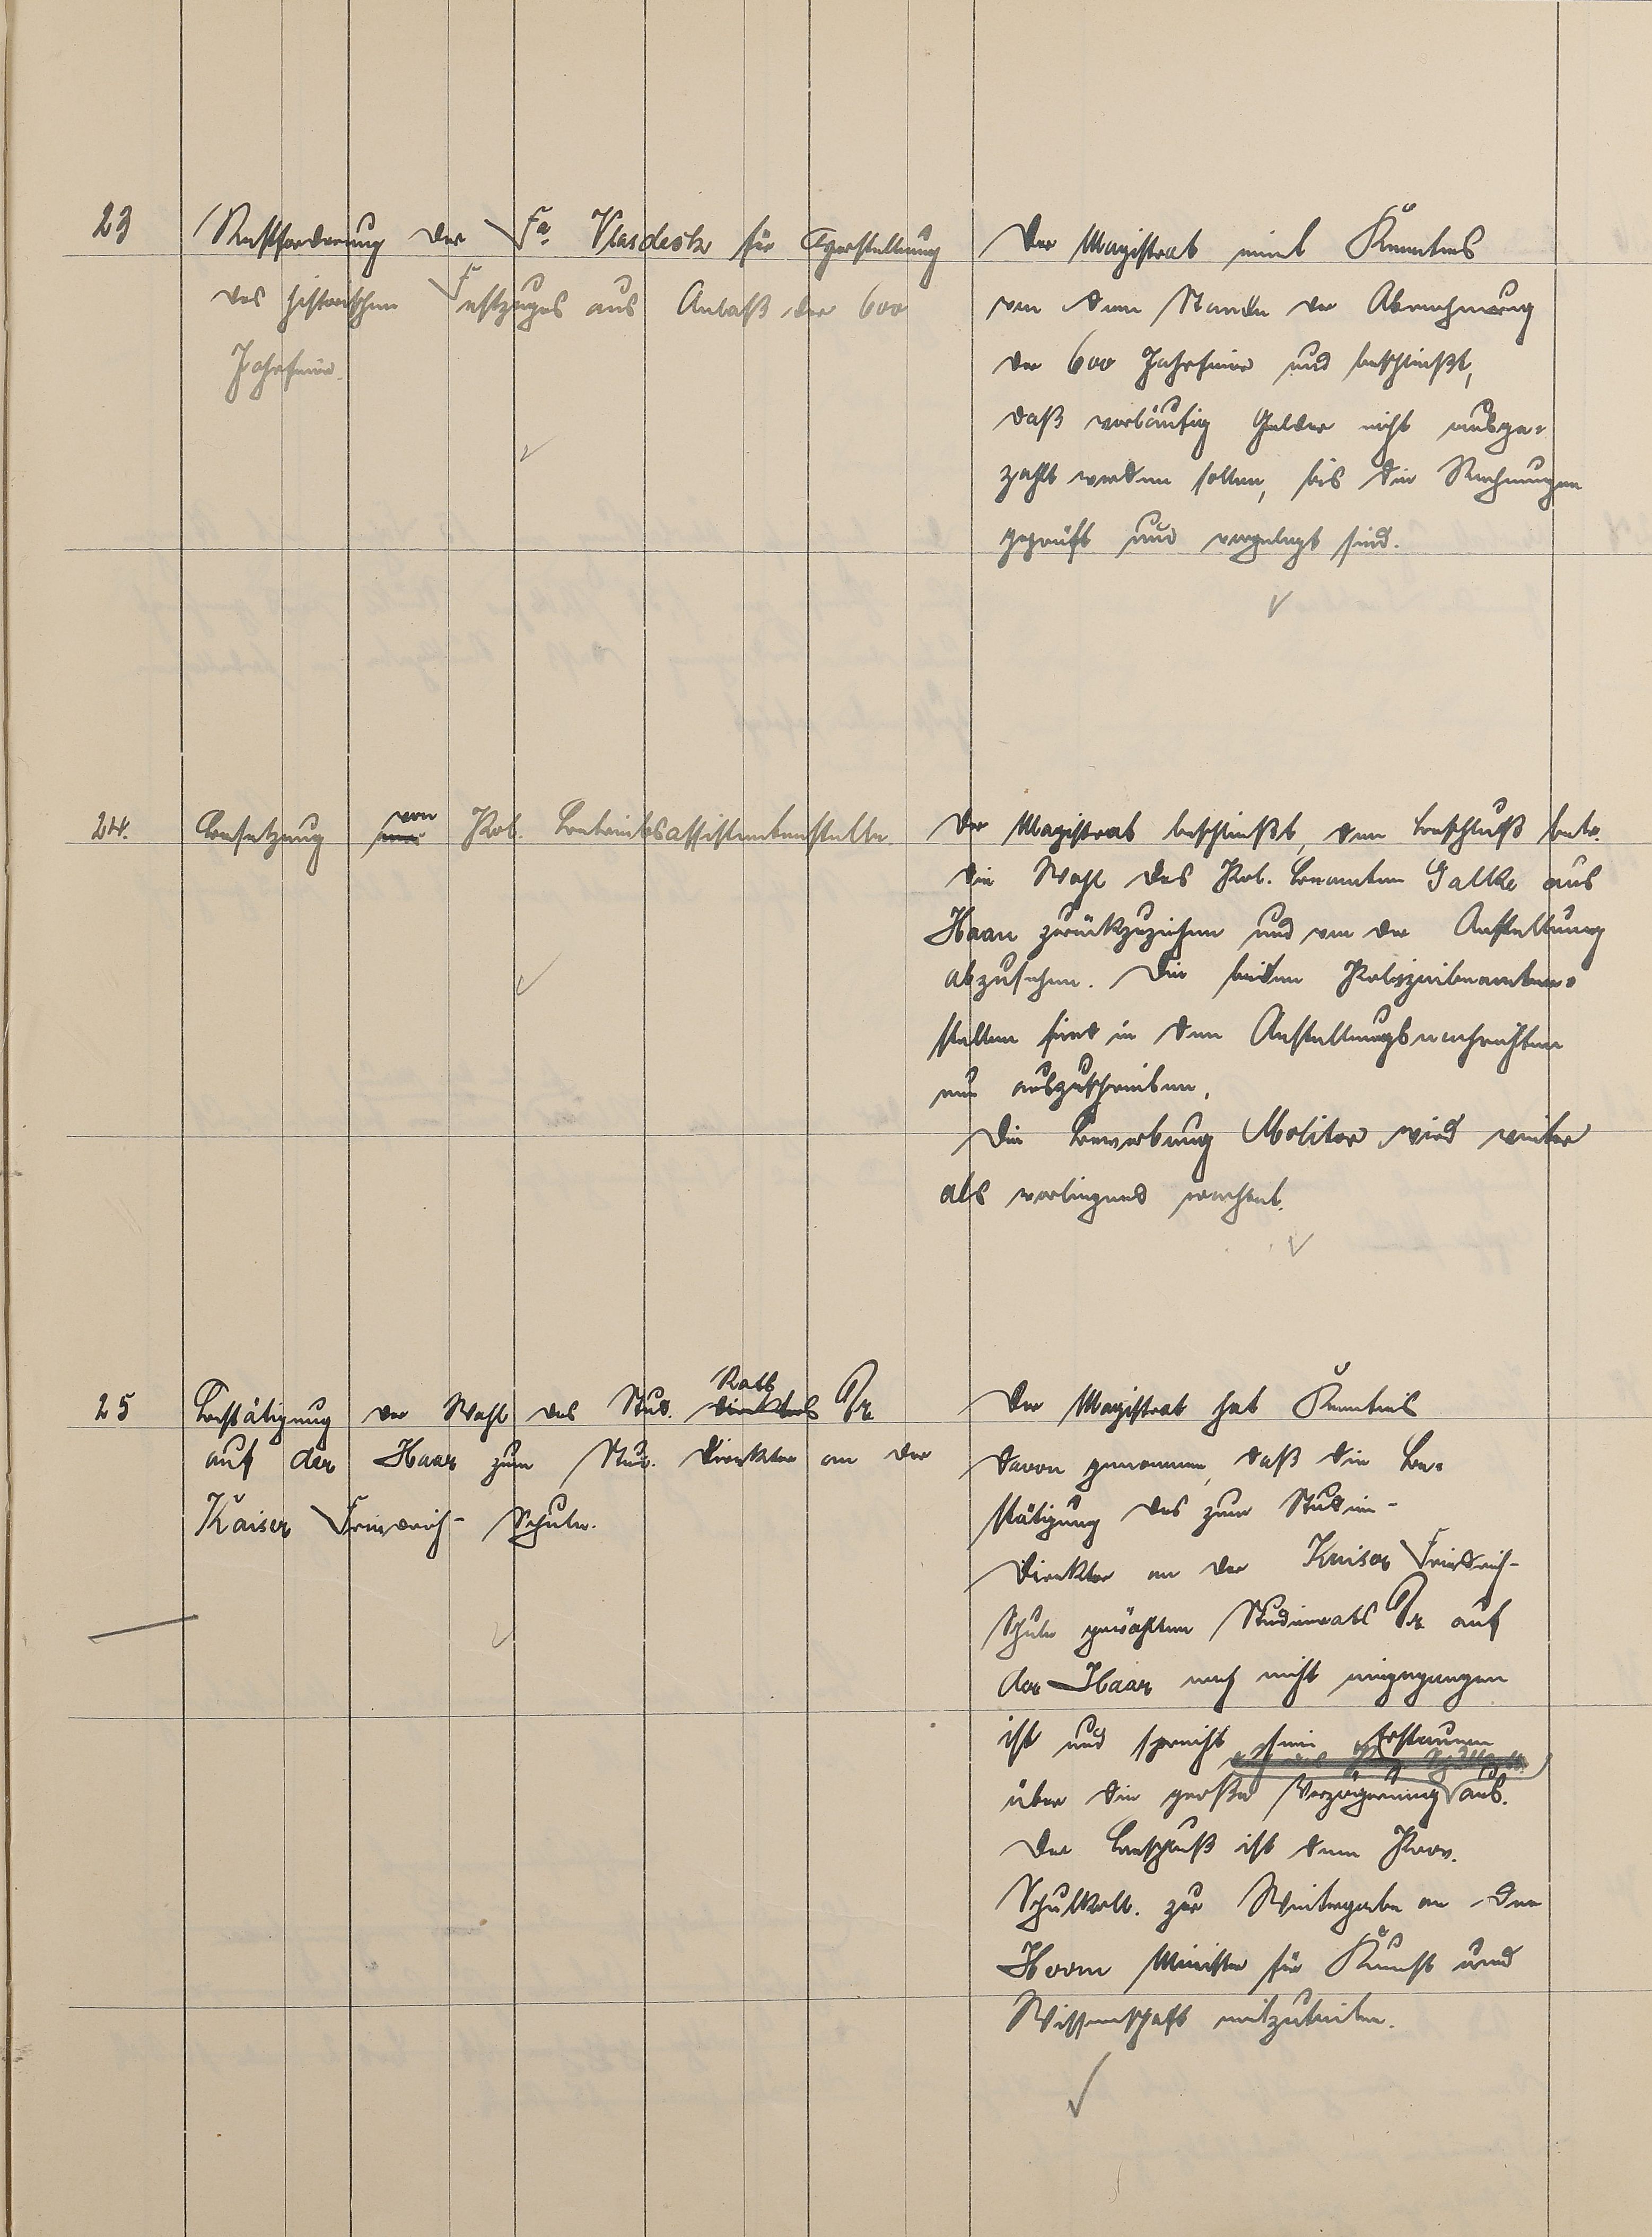 23
Restforderung der Fa. Vlasdeck für Gestellung
des historischen Festzuges aus Anlaß der 600
Jahrfeier.
Der Magistrat nimt Kenntnis
von dem Stande der Abrechnung
der 600 Jahrfeier und beschließt,
daß vorläufig Gelder nicht ausge=
zahlt werden sollen, bis die Rechnungen
geprüft und vorgelegt sind.
24.
Besetzung von Pol. Betriebsassistentenstelle.
Der Magistrat beschließt, den Beschluß betr.
die Wahl des Pol. Beamten Galke aus
Haan zurückzuziehen und von der Anstellung
abzusehen. Die beiden Polizeibeamten=
stellen sind in den Anstellungsnachrichten
neu auszuschreiben.
Die Bewerbung Molitor wird weiter
als vorliegend erachtet.
25
Bestätigung der Wahl des Stud. direktors Rats Dr
auf der Haar zum Stud. Direktor an der
Kaiser Friedrich- Schule.
Der Magistrat hat Kenntnis
davon genommen, daß die Be=
stätigung des zum Studien-
direktor an der Kaiser Friedrich-
Schule gewählten Studienrats Dr auf
der Haar noch nicht eingegangen
ist und spricht sein Erstaunen
über die große Verzögerung aus.
Der Beschluß ist dem Prov.
Schulkoll. zur Weitergabe an den
Herrn Minister für Kunst und
Wissenschaft mitzuteilen.